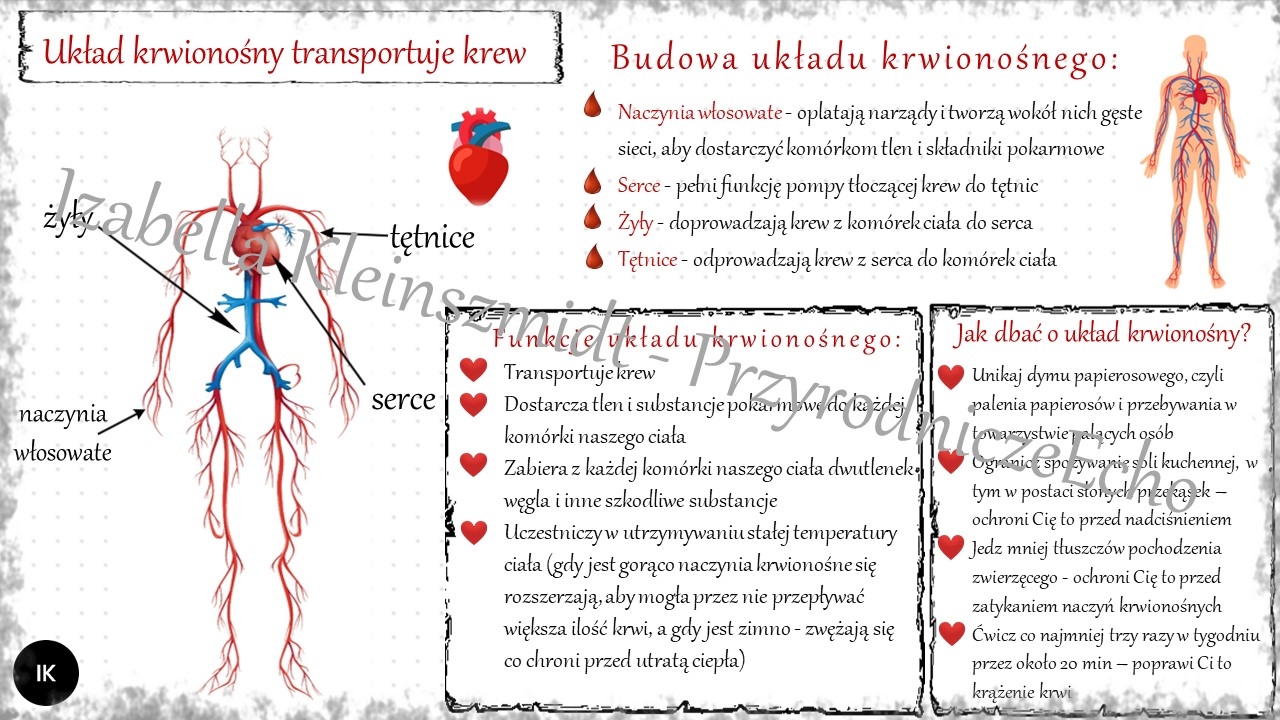 Układ krwionośny transportuje krew
żyły
tętnice
serce
naczynia
włosowate
IK
Budowa układu krwionośnego:
Naczynia włosowate - oplatają narządy i tworzą wokół nich gęste
sieci, aby dostarczyć komórkom tlen i składniki pokarmowe
Serce - pełni funkcję pompy tłoczącej krew do tętnic
Żyły - doprowadzają krew z komórek ciała do serca
Tętnice - odprowadzają krew z serca do komórek ciała
Funkcje układu krwionośnego:
Transportuje krew
Dostarcza tlen i substancje pokarmowe do każdej
komórki naszego ciała
Zabiera z każdej komórki naszego ciała dwutlenek
węgla i inne szkodliwe substancje
Uczestniczy w utrzymywaniu stałej temperatury
ciała (gdy jest gorąco naczynia krwionośne się
rozszerzają, aby mogła przez nie przepływać
większa ilość krwi, a gdy jest zimno - zwężają się
co chroni przed utratą ciepła)
Jak dbać o układ krwionośny?
Unikaj dymu papierosowego, czyli
palenia papierosów i przebywania w
towarzystwie palących osób
Ogranicz spożywanie soli kuchennej, w
tym w postaci słonych przekąsek –
ochroni Cię to przed nadciśnieniem
Jedz mniej tłuszczów pochodzenia
zwierzęcego - ochroni Cię to przed
zatykaniem naczyń krwionośnych
Ćwicz co najmniej trzy razy w tygodniu
przez około 20 min – poprawi Ci to
krążenie krwi
Izabella Kleinszmidt - PrzyrodniczeEcho